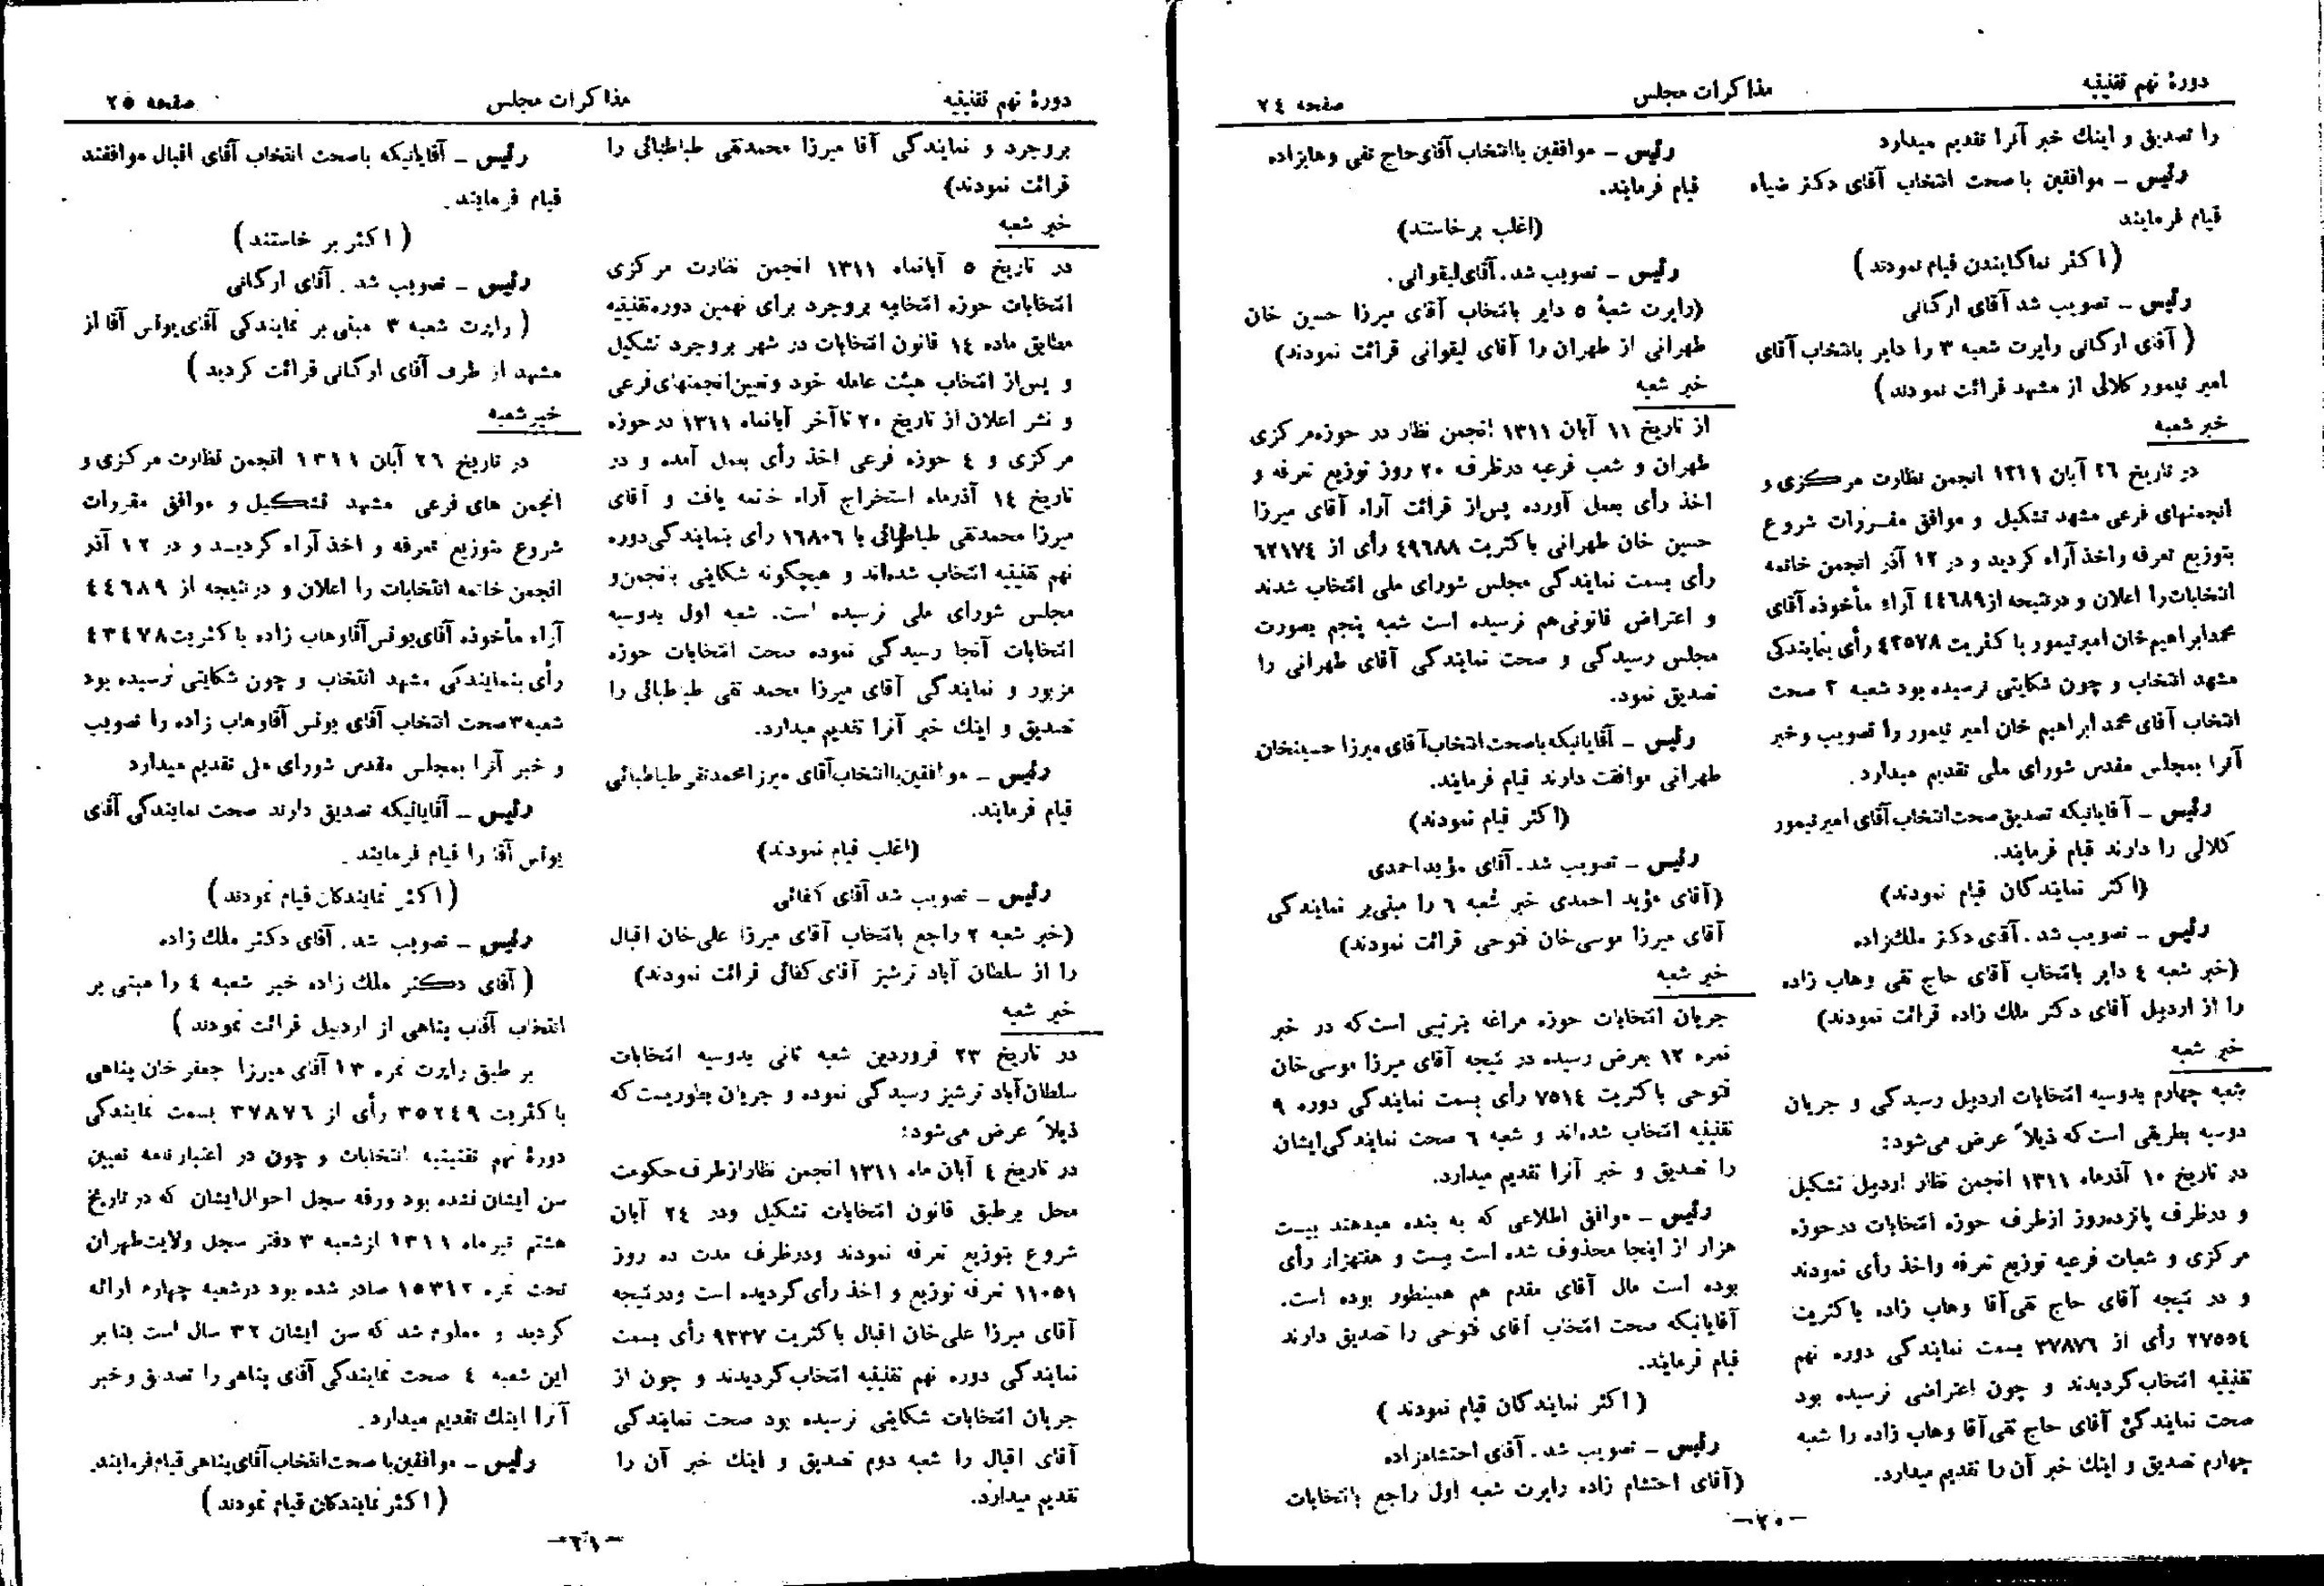 دورهٔ نهم تقنینیه
مذاکرات مجلس
صفحه ۲۴
را تصدیق و اینك خبر آنرا تقدیم میدارد
رئیس ـ موافقین با صحت انتخاب آقای دکتر ضیاء
قیام فرمایند
(اکثر نماکایندن قیام نمودند)
رئیس ـ تصویب شد آقای ارکانی
(آقای ارکانی راپرت شعبه ۳ را دایر بانتخاب آقای
امیر تیمور کلالی از مشهد قرائت نمودند)
خبر شعبه
در تاریخ ۲۶ آبان ۱۳۱۱ انجمن نظارت مرکزی و
انجمنهای فرعی مشهد تشکیل و موافق مقررات شروع
بتوزیع تعرفه واخذ آراء کردید و در ۱۲ آذر انجمن خاتمه
انتخابات را اعلان و درنتیجه از ۴۴۶۸۹ آراء مأخوذه آقای
محمدابراهیم خان امیرتیمور با کثریت ۴۳۵۷۸ رأی بنمایندکی
مشهد انتخاب و چون شکایتی نرسیده بود شعبه ۳ صحت
انتخاب آقای محمد ابراهیم خان امیر تیمور را تصویب وخبر
آنرا بمجلس مقدس شورای ملی تقدیم میدارد.
رئیس ـ آقایانیکه تصدیق صحت انتخاب آقای امیر تیمور
کلالی را دارند قیام فرمایند.
(اکثر نمایندکان قیام نمودند)
رئیس ـ تصویب شد. آقای دکتر ملكزاده
(خبر شعبه ۴ دایر بانتخاب آقای حاج تقی وهاب زاده
را از اردبیل آقای دکتر ملك زاده قرائت نمودند)
خبر شعبه
شعبه چهارم بدوسیه انتخابات اردبیل رسیدکی و جریان
دوسیه بطریقی است که ذیلاً عرض میشود:
در تاریخ ۱۰ آذرماه ۱۳۱۱ انجمن نظار اردبیل تشکیل
و درظرف پانزدهروز ازطرف حوزه انتخابات درحوزه
مرکزی و شعبات فرعیه توزیع تعرفه واخذ رأی نمودند
و در نتیجه آقای حاج تقیآقا وهاب زاده باکثریت
۲۷۵۵۴ رأی از ۳۷۸۷۶ بسمت نمایندکی دوره نهم
تقنینیه انتخاب کردیدند و چون اعتراضی نرسیده بود
صحت نمایندکی آقای حاج تقیآقا وهاب زاده را شعبه
چهارم تصدیق و اینك خبر آن را تقدیم میدارد.
رئیس ـ موافقین باانتخاب آقای حاج تقی وهابزاده
قیام فرمایند.
(اغلب برخاستند)
رئیس ـ تصویب شد. آقای لیقوانی.
(راپرت شعبهٔ ۵ دایر بانتخاب آقای میرزا حسین خان
طهرانی از طهران را آقای لیقوانی قرائت نمودند)
خبر شعبه
از تاریخ ۱۱ آبان ۱۳۱۱ انجمن نظار در حوزهمرکزی
طهران و شعب فرعیه درظرف ۲۰ روز توزیع تعرفه و
اخذ رأی بعمل آورده پساز قرائت آراء آقای میرزا
حسین خان طهرانی باکثریت ۴۹۶۸۸ رأی از ۶۲۱۷۴
رأی بسمت نمایندکی مجلس شورای ملی انتخاب شدند
و اعتراض قانونیهم نرسیده است شعبه پنجم بصورت
مجلس رسیدکی و صحت نمایندکی آقای طهرانی را
تصدیق نمود.
رئیس ـ آقایانیکه باصحت انتخاب آقای میرزا حسینخان
طهرانی موافقت دارند قیام فرمایند.
(اکثر قیام نمودند)
رئیس ـ تصویب شد. آقای مؤیداحمدی
(آقای مؤید احمدی خبر شعبه ۶ را مبنیبر نمایندکی
آقای میرزا موسیخان فتوحی قرائت نمودند)
خبر شعبه
جریان انتخابات حوزه مراغه بترتیبی است که در خبر
نمره ۱۲ بعرض رسیده در نتیجه آقای میرزا موسیخان
فتوحی باکثریت ۷۵۱۴ رأی بسمت نمایندکی دوره ۹
تقنینیه انتخاب شدهاند و شعبه ۶ صحت نمایندکیایشان
را تصدیق و خبر آنرا تقدیم میدارد.
رئیس ـ موافق اطلاعی که به بنده میدهند بیست
هزار از اینجا محذوف شده است بیست و هفتهزار رأی
بوده است مال آقای مقدم هم همینطور بوده است.
آقایانیکه صحت انتخاب آقای فتوحی را تصدیق دارند
قیام فرمایند.
(اکثر نمایندکان قیام نمودند)
رئیس ـ تصویب شد. آقای احتشامزاده
(آقای احتشام زاده راپرت شعبه اول راجع بانتخابات
ـ۲۰ـ
دورهٔ نهم تقنینیه
مذاکرات مجلس
صفحه ۲۵
بروجرد و نمایندکی آقا میرزا محمدتقی طباطبائی را
قرائت نمودند)
خبر شعبه
در تاریخ ۵ آبانماه ۱۳۱۱ انجمن نظارت مرکزی
انتخابات حوزه انتخابیه بروجرد برای نهمین دورهتقنینیه
مطابق ماده ۱۴ قانون انتخابات در شهر بروجرد تشکیل
و پساز انتخاب هیئت عامله خود وتعیین انجمنهای فرعی
و نشر اعلان از تاریخ ۲۰ تاآخر آبانماه ۱۳۱۱ درحوزه
مرکزی و ۴ حوزه فرعی اخذ رأی بعمل آمده و در
تاریخ ۱۴ آذرماه استخراج آراء خاتمه یافت و آقای
میرزا محمدتقی طباطبائی با ۱۶۸۰۶ رأی بنمایندکیدوره
نهم تقنینیه انتخاب شدهاند و هیچکونه شکایتی بانجمن و
مجلس شورای ملی نرسیده است. شعبه اول بدوسیه
انتخابات آنجا رسیدکی نموده صحت انتخابات حوزه
مزبور و نمایندکی آقای میرزا محمد تقی طباطبائی را
تصدیق و اینك خبر آنرا تقدیم میدارد.
رئیس ـ موافقین باانتخاب آقای میرزامحمدتقی طباطبائی
قیام فرمایند.
(اغلب قیام نمودند)
رئیس ـ تصویب شد آقای کفائی
(خبر شعبه ۲ راجع بانتخاب آقای میرزا علیخان اقبال
را از سلطان آباد ترشیز آقای کفائی قرائت نمودند)
خبر شعبه
در تاریخ ۲۳ فروردین شعبه ثانی بدوسیه انتخابات
سلطانآباد ترشیز رسیدکی نموده و جریان بطوریست که
ذیلاً عرض میشود:
در تاریخ ۴ آبان ماه ۱۳۱۱ انجمن نظارازطرف حکومت
محل برطبق قانون انتخابات تشکیل ودر ۲۴ آبان
شروع بتوزیع تعرفه نمودند ودرظرف مدت ده روز
۱۱۰۵۱ تعرفه توزیع و اخذ رأی کردیده است ودرنتیجه
آقای میرزا علیخان اقبال باکثریت ۹۳۳۷ رأی بسمت
نمایندکی دوره نهم تقنینیه انتخاب کردیدند و چون از
جریان انتخابات شکایتی نرسیده بود صحت نمایندکی
آقای اقبال را شعبه دوم تصدیق و اینك خبر آن را
تقدیم میدارد.
رئیس ـ آقایانیکه باصحت انتخاب آقای اقبال موافقند
قیام فرمایند.
(اکثر بر خاستند)
رئیس ـ تصویب شد. آقای ارکانی
(راپرت شعبه ۳ مبنی بر نمایندکی آقای یونس آقا از
مشهد از طرف آقای ارکانی قرائت کردید)
خبر شعبه
در تاریخ ۲۶ آبان ۱۳۱۱ انجمن نظارت مرکزی و
انجمن های فرعی مشهد تشکیل و موافق مقررات
شروع بتوزیع تعرفه و اخذ آراء کردید و در ۱۲ آذر
انجمن خاتمه انتخابات را اعلان و درنتیجه از ۴۴۶۸۹
آراء مأخوذه آقای یونس آقاوهاب زاده باکثریت ۴۳۴۷۸
رأی بنمایندکی مشهد انتخاب و چون شکایتی نرسیده بود
شعبه ۳ صحت انتخاب آقای یونس آقاوهاب زاده را تصویب
و خبر آنرا بمجلس مقدس شورای ملی تقدیم میدارد
رئیس ـ آقایانیکه تصدیق دارند صحت نمایندکی آقای
یونس آقا را قیام فرمایند.
(اکثر نمایندکان قیام نمودند)
رئیس ـ تصویب شد. آقای دکتر ملك زاده
(آقای دکتر ملك زاده خبر شعبه ۴ را مبنی بر
انتخاب آقای پناهی از اردبیل قرائت نمودند)
بر طبق راپرت نمره ۱۳ آقای میرزا جعفر خان پناهی
باکثریت ۳۵۲۴۹ رأی از ۳۷۸۷۶ بسمت نمایندکی
دورهٔ نهم تقنینیه انتخابات و چون در اعتبارنامه تعیین
سن ایشان نشده بود ورقه سجل احوال ایشان که در تاریخ
هشتم تیرماه ۱۳۱۱ ازشعبه ۳ دفتر سجل ولایت طهران
تحت نمره ۱۵۳۱۲ صادر شده بود درشعبه چهارم ارائه
کردید و معلوم شد که سن ایشان ۳۲ سال است بنابر
این شعبه ۴ صحت نمایندکی آقای پناهی را تصدیق وخبر
آنرا اینك تقدیم میدارد.
رئیس ـ موافقین با صحت انتخاب آقای پناهی قیام فرمایند.
(اکثر نمایندکان قیام نمودند)
ـ۲۱ـ